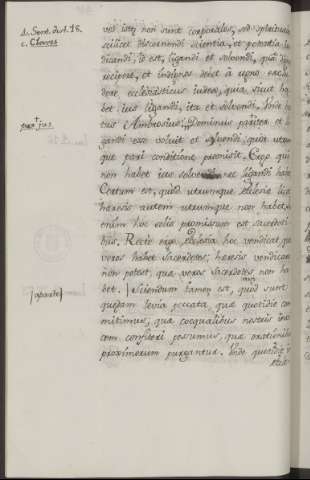 4. Sent. dist. 18.
c. Claves
ves istæ non sunt corporales, sed spirituales
scilicet discernendi scientia, et potentia iu
dicandi, id est, ligandi et solvendi, qua dignos
recipere, et indignos debet à regno exclu
dere ecclesiasticus iudex, quia, sicut ha
bet ius ligandi, ita et solvendi. Unde
tus Ambrosius: Dominus par ius et li
par † jus
gandi esse voluit et solvendi, qui utrum
que pari conditione promisit. Ergo, qui
non habet ius solvendi nec ligandi habet
Certum est, quod utrumque Ecclesia
hæresis autem utrumque non habet
enim hoc solis promissum est sacerdoti
bus. Recte ergo Ecclesia hoc vendicat, quæ
veros habet Sacerdotes; hæresis vendicare
non potest, quæ veros Sacerdotes non ha
bet. ] Sciendum tamen est, quod sunt
quædam levia peccata, quæ quotidie com
mitimus, quæ coequalibus nostris invi
cem confiteri possumus, quæ orationibus
proximorum purgantur. Unde quotidie